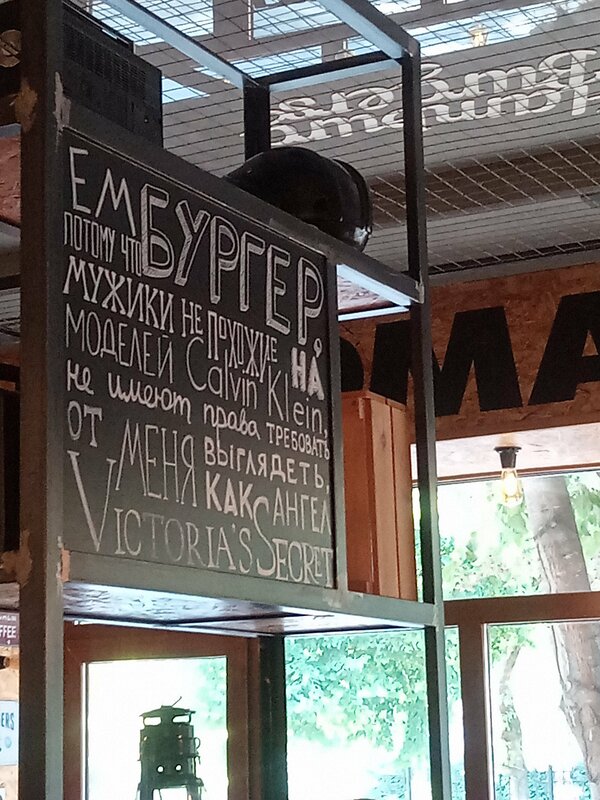 ЕМ БУРГЕР,
ПОТОМУ ЧТО
МУЖИКИ НЕ ПОХОЖИЕ НА
МОДЕЛЕЙ Calvin Klein,
не имеют права ТРЕБОВАТЬ
ОТ МЕНЯ ВЫГЛЯДЕТЬ,
КАК АНГЕЛ
VICTORIA'S SECRET
MA
FFEE
ERS